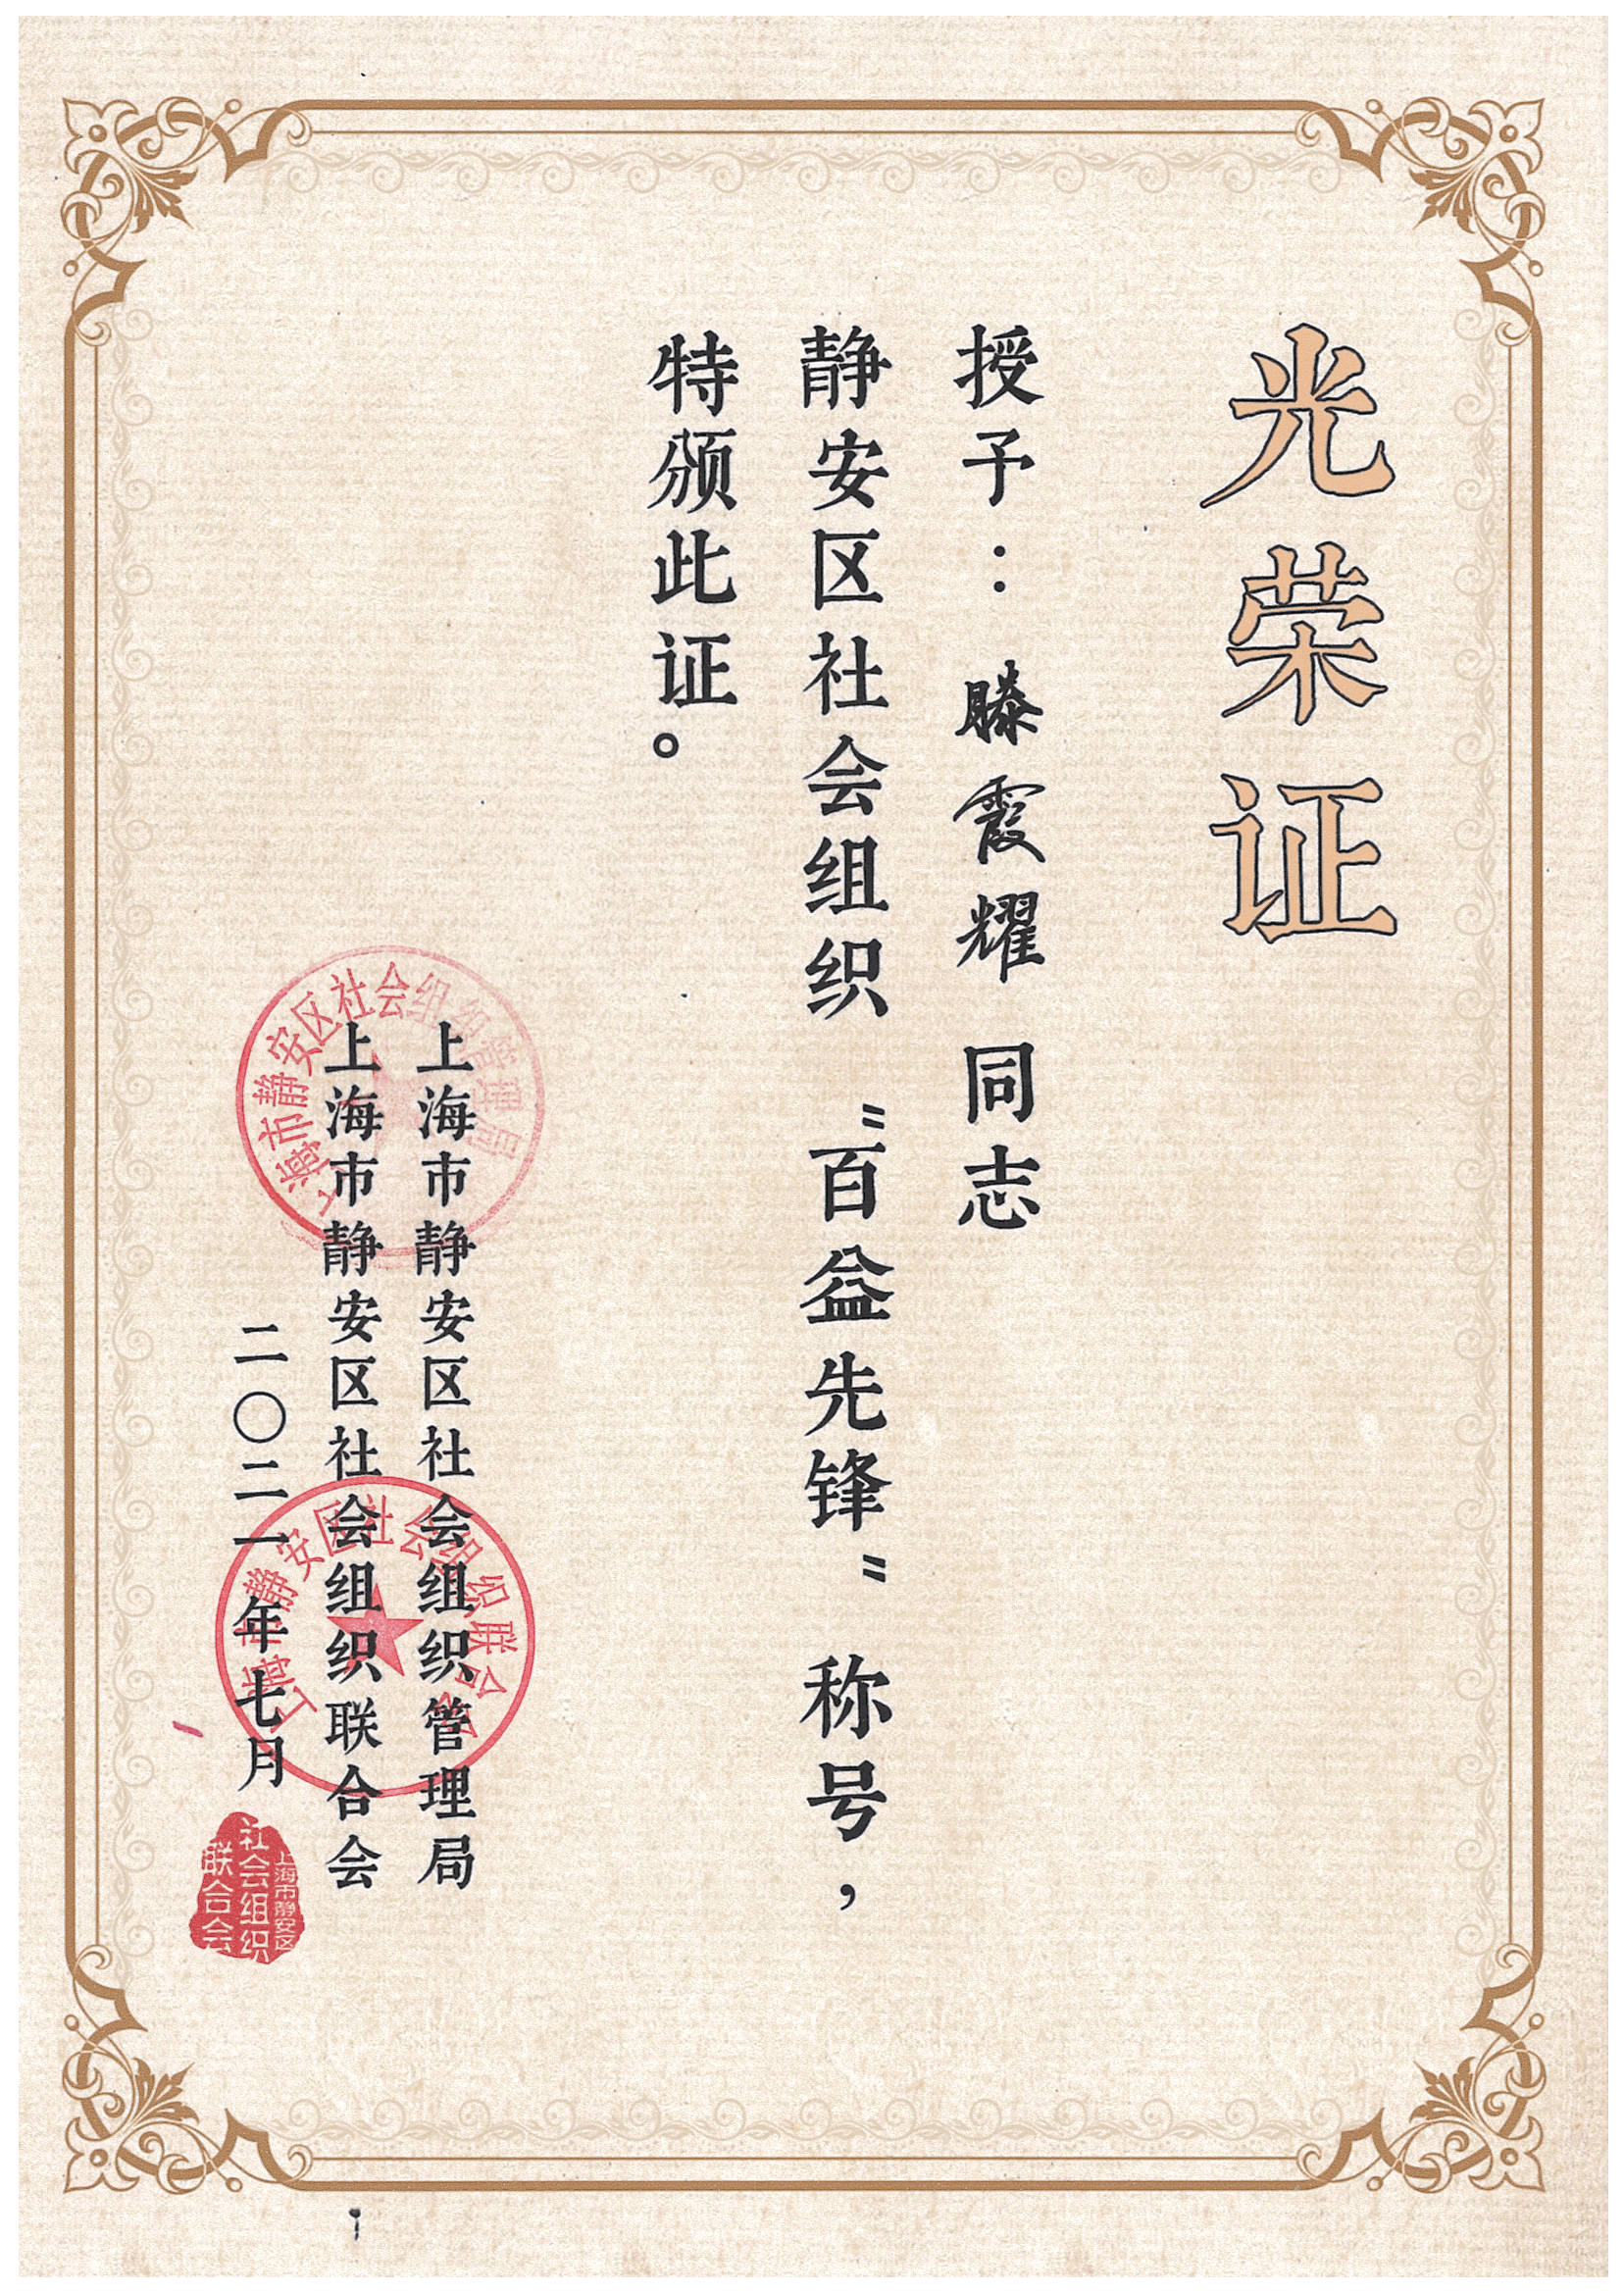 光荣证
授予：滕霞耀 同志
静安区社会组织“百益先锋”称号，
特颁此证。
上海市静安区社会组织管理局
上海市静安区社会组织联合会
二〇二一年七月
上海市静安区社会组织管理局
上海市静安区社会组织联合会
上海市静安区
社会组织
联合会